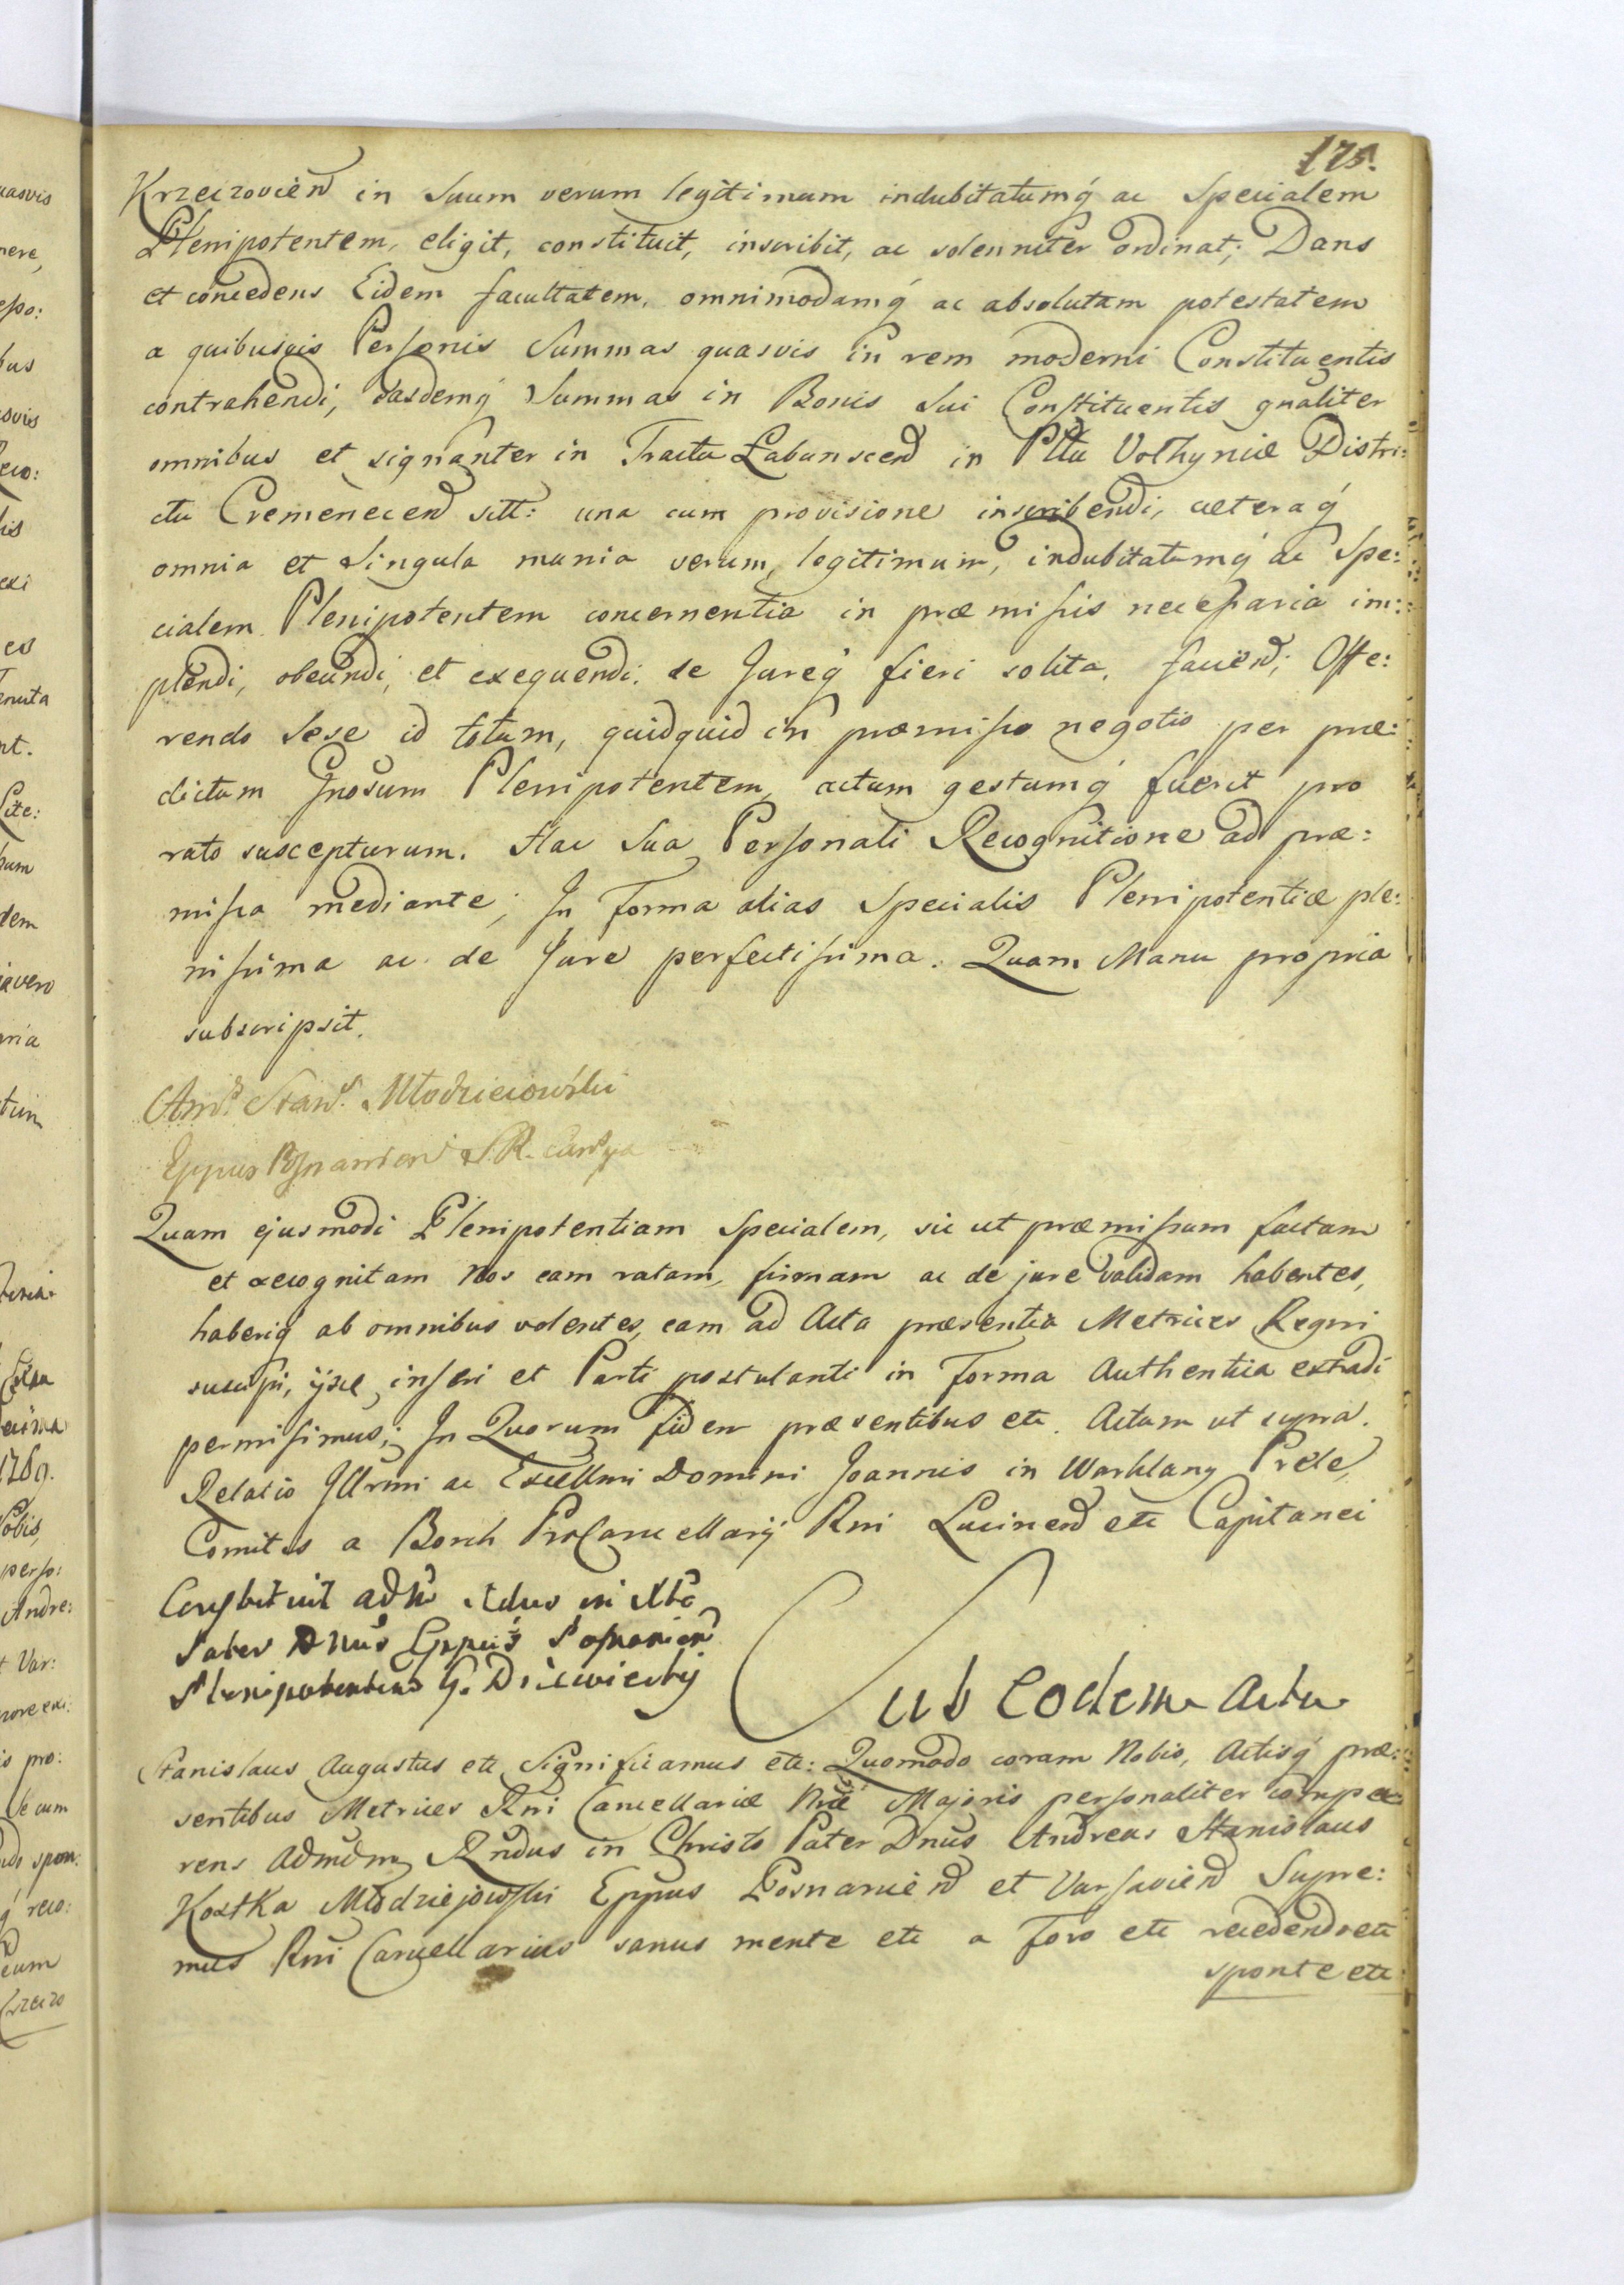 175.
Krzeczovien in Suum verum legitimum indubitatumq́ ac Specialem
Plenipotentem, eligit, constituit, inscribit, ac solenniter ordinat; Dans
et concedens Eidem facultatem, omnimodamq́ ac absolutam potestatem
a quibusvis Personis Summas quasvis in rem moderni Constituentis
contrahendi, easdemq́ Summas in Bonis Sui Constituentis gnaliter
omnibus et signanter in Tractu Labunscen in Pttu Volhyniæ Distri:
ctu Cremenecen sitt: una cum provisione inscribendi, ceteraq́
omnia et Singula munia verum, legitimum, indubitatumq́ ac Spe:
cialem Plenipotentem concernentia in præmissis necessaria im:
plendi, obeundi, et exequendi. de Jureq́ fieri solita, facien; Offe:
rendo Sese id totum, quidquid in præmisso negotio per præ:
dictum Gnosum Plenipotentem, actum gestumq́ fuerit pro
rato suscepturum. Hac Sua Personali Recognitione ad præ:
missa mediante; In Forma alias Specialis Plenipotentiæ ple:
nissima ac de Jure perfectissima. Quam Manu propria
subscripsit.
Młodzieiowski
Eppus Posnanien
Quam ejusmodi Plenipotentiam Specialem, sic ut præmissum factam
et recognitam Nos eam ratam, firmam ac de jure validam habentes,
haberiq́ ab omnibus volentes, eam ad Acta præsentia Metrices Regni
suscipi, ijsq́, inseri et Parti postulanti in Forma Authentica extradi
permisimus; In Quorum fidem præsentibus etc. Actum ut supra.
Relatio Illrmi ac Excellmi Domini Joannis in Warklany Prele,
Comitis a Borch ProCancellarij Rni Lucinen etc Capitanei
Constituit
Pater Dnus Eppus Posnanien
Plenipotentem G. Drzewiecky
Sub Eodem Actu
Stanislaus Augustus etc Significamus etc: Quomodo coram Nobis, Actisq́ præ:
sentibus Metrices Rni Cancellariæ Nræ Majoris personaliter compa
rens Admdm Rndus in Christo Pater Dnus Andreas Stanislaus
Kostka Młodziejowski Eppus Posnanien et Varsavien Supre:
mus Rni Cancellarius sanus mente etc a Foro etc recedendo etc
sponte etc